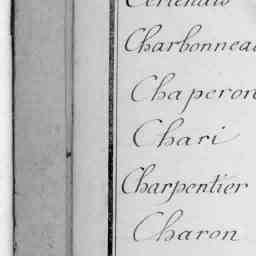 Charbonneau
Chaperon
Chari
Charpentier
Charon